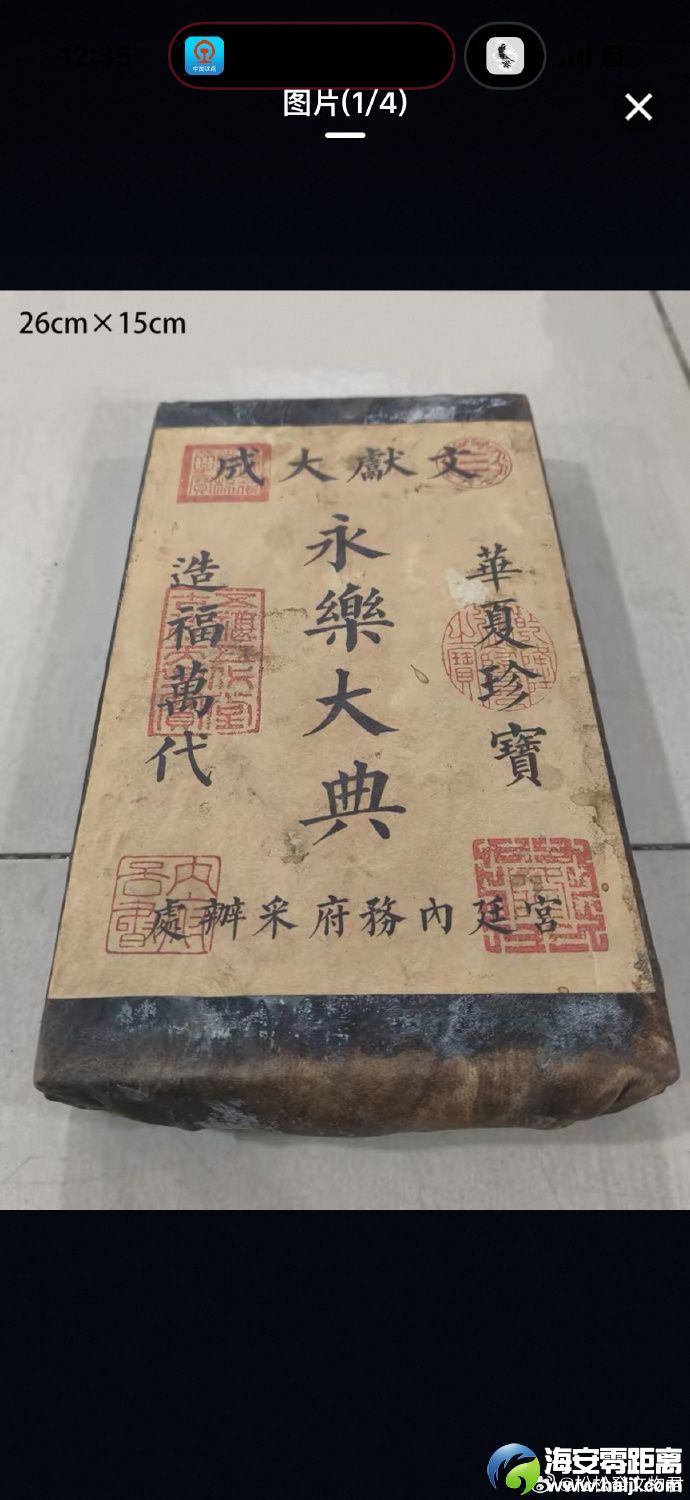 12:35
图片(1/4)
26cm×15cm
文獻大成
華夏珍寶
永樂大典
造福萬代
宮廷內務府采辦處
海安零距离